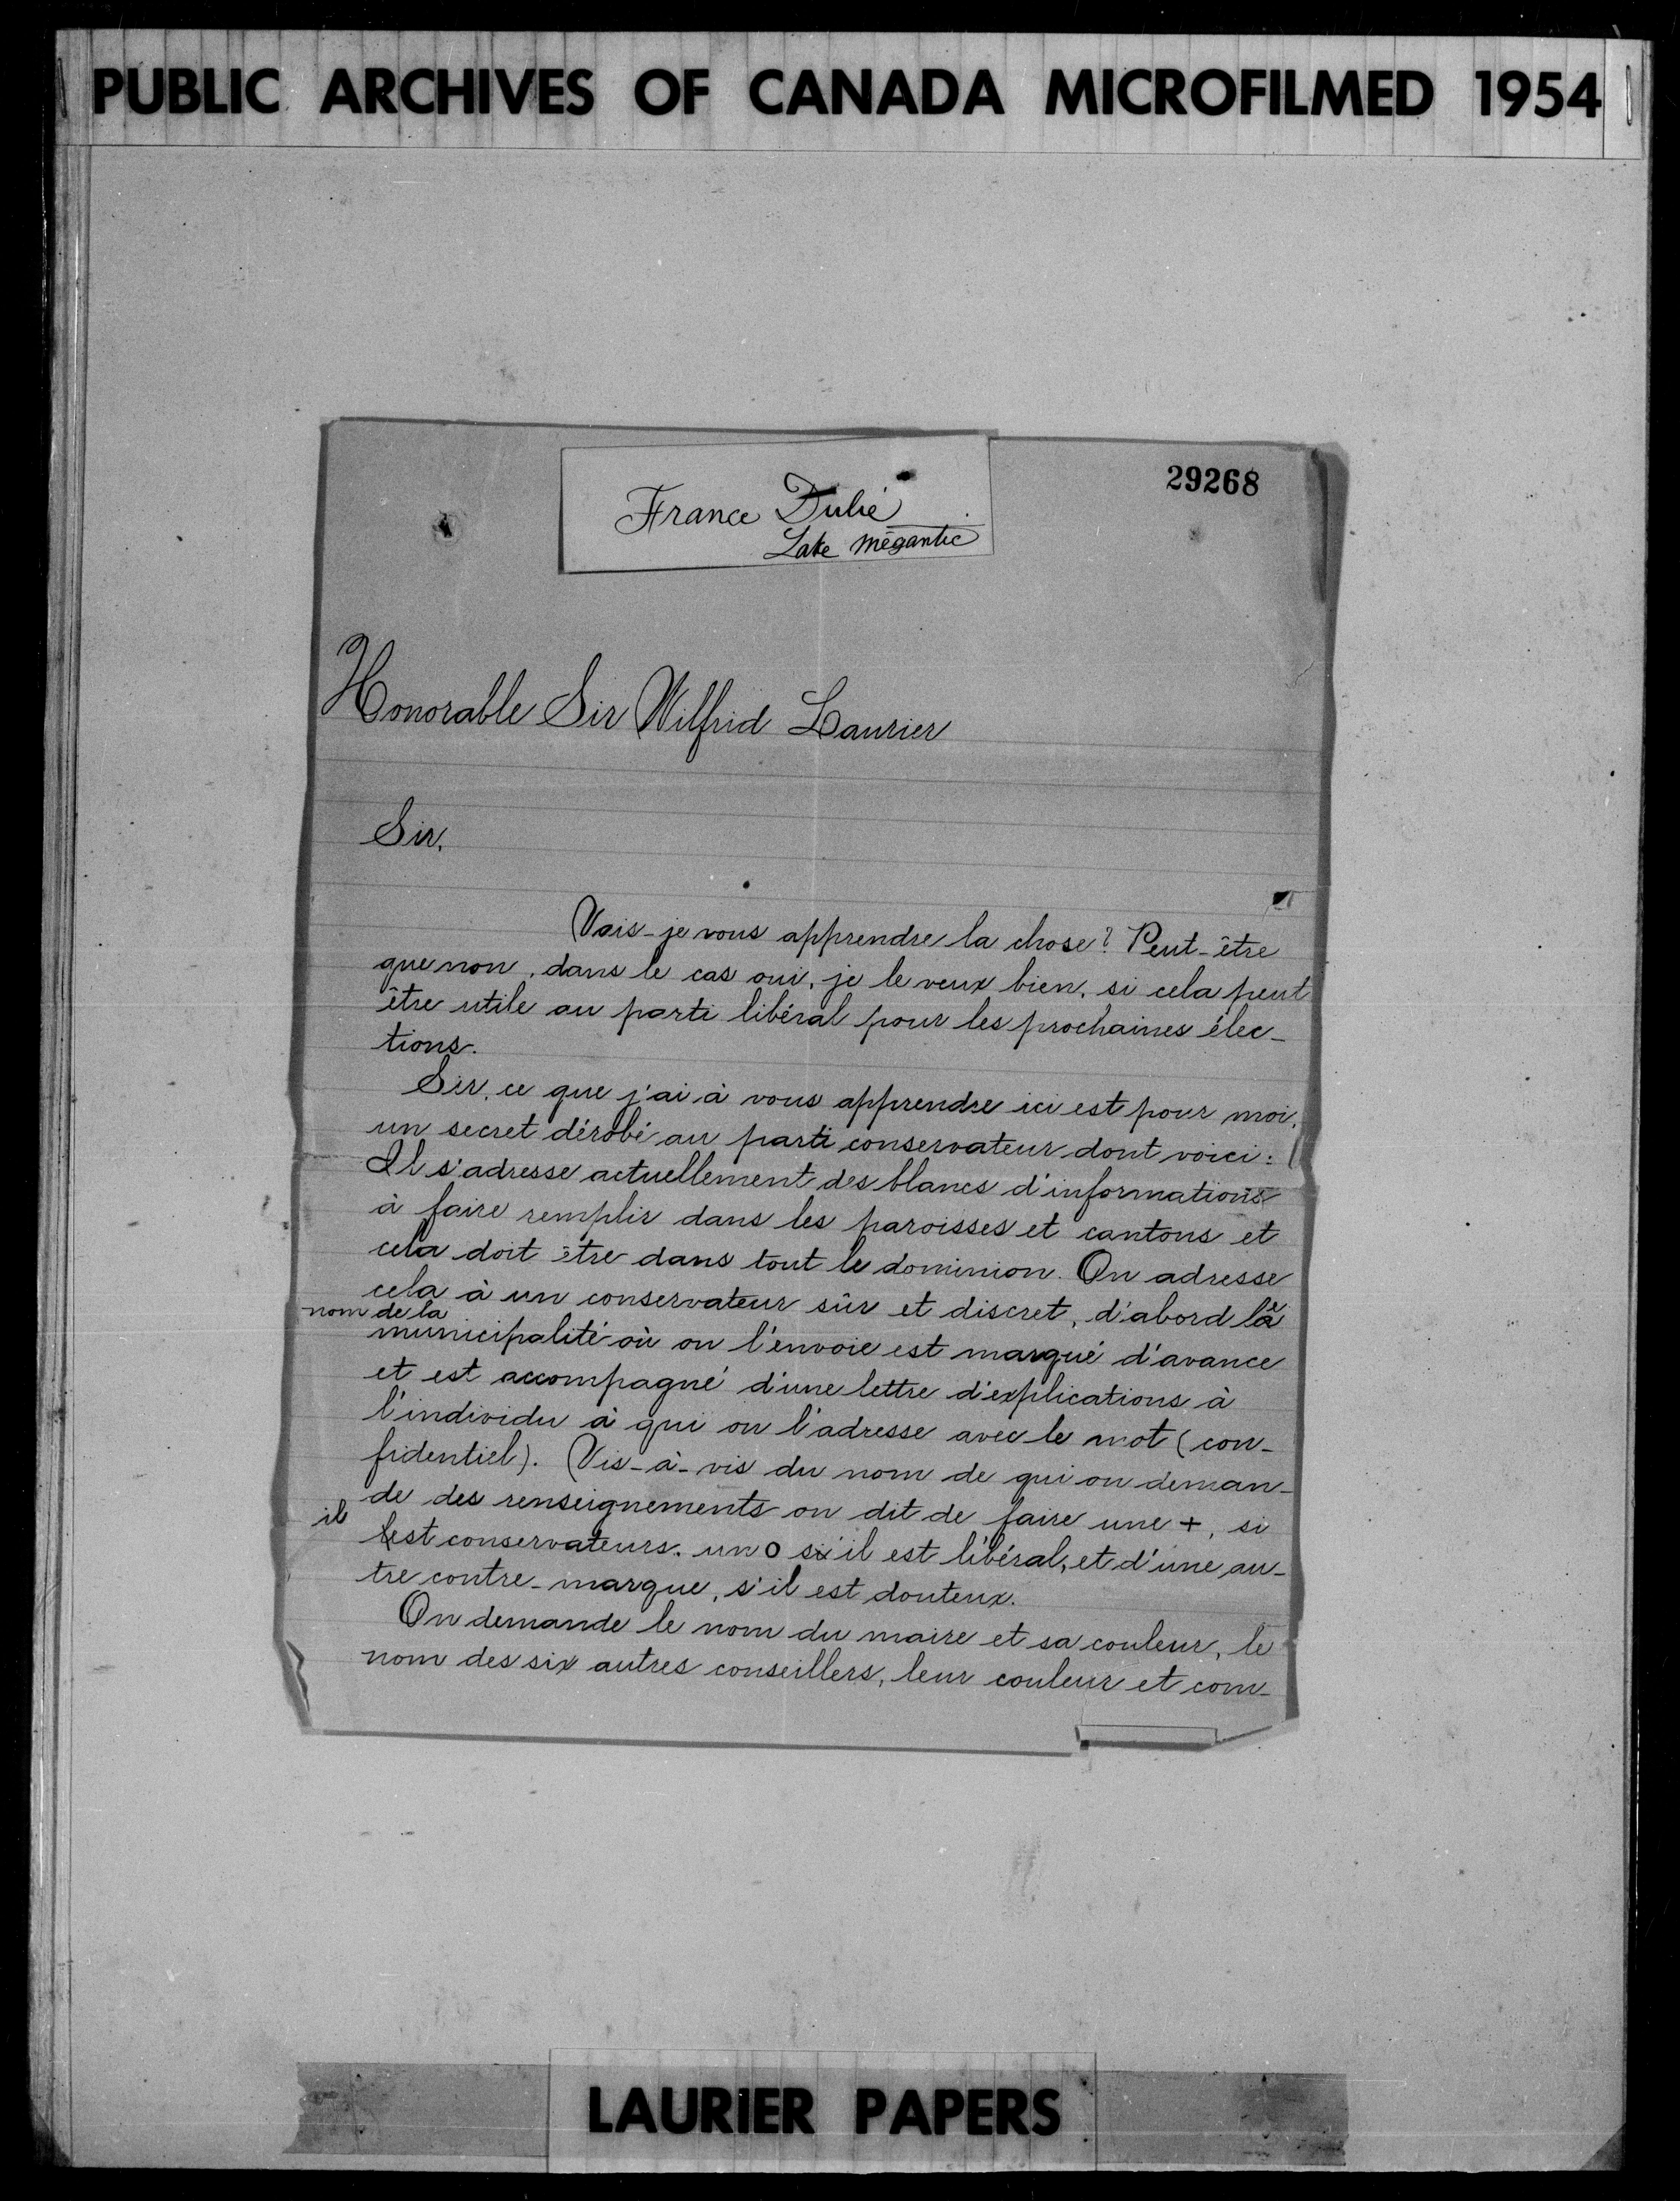 PUBLIC ARCHIVES OF CANADA MICROFILMED 1954
29268
France Dubé
Lake Mégantic
Honorable Sir Wilfrid Laurier
Sir,
Vais-je vous apprendre la chose? Peut-être
que non, dans le cas oui, je le veux bien, si cela peut
être utile au parti libéral pour les prochaines élec-
tions.
Sir, ce que j'ai à vous apprendre ici est pour moi,
un secret dérobé au parti conservateur dont voici:
Il s'adresse actuellement des blancs d'informations
à faire remplir dans les paroisses et cantons et
cela doit être dans tout le dominion. On adresse
cela à un conservateur sûr et discret, d'abord le
nom de la
municipalité où on l'envoie est marqué d'avance
et est accompagné d'une lettre d'explications à
l'individu à qui on l'adresse avec le mot (con-
fidentiel). Vis-à-vis du nom de qui on deman-
de des renseignements on dit de faire une +, si
il est conservateurs. un o si il est libéral, et d'une au-
tre contre-marque, s'il est douteux.
On demande le nom du maire et sa couleur, le
nom des six autres conseillers, leur couleur et com-
LAURIER PAPERS